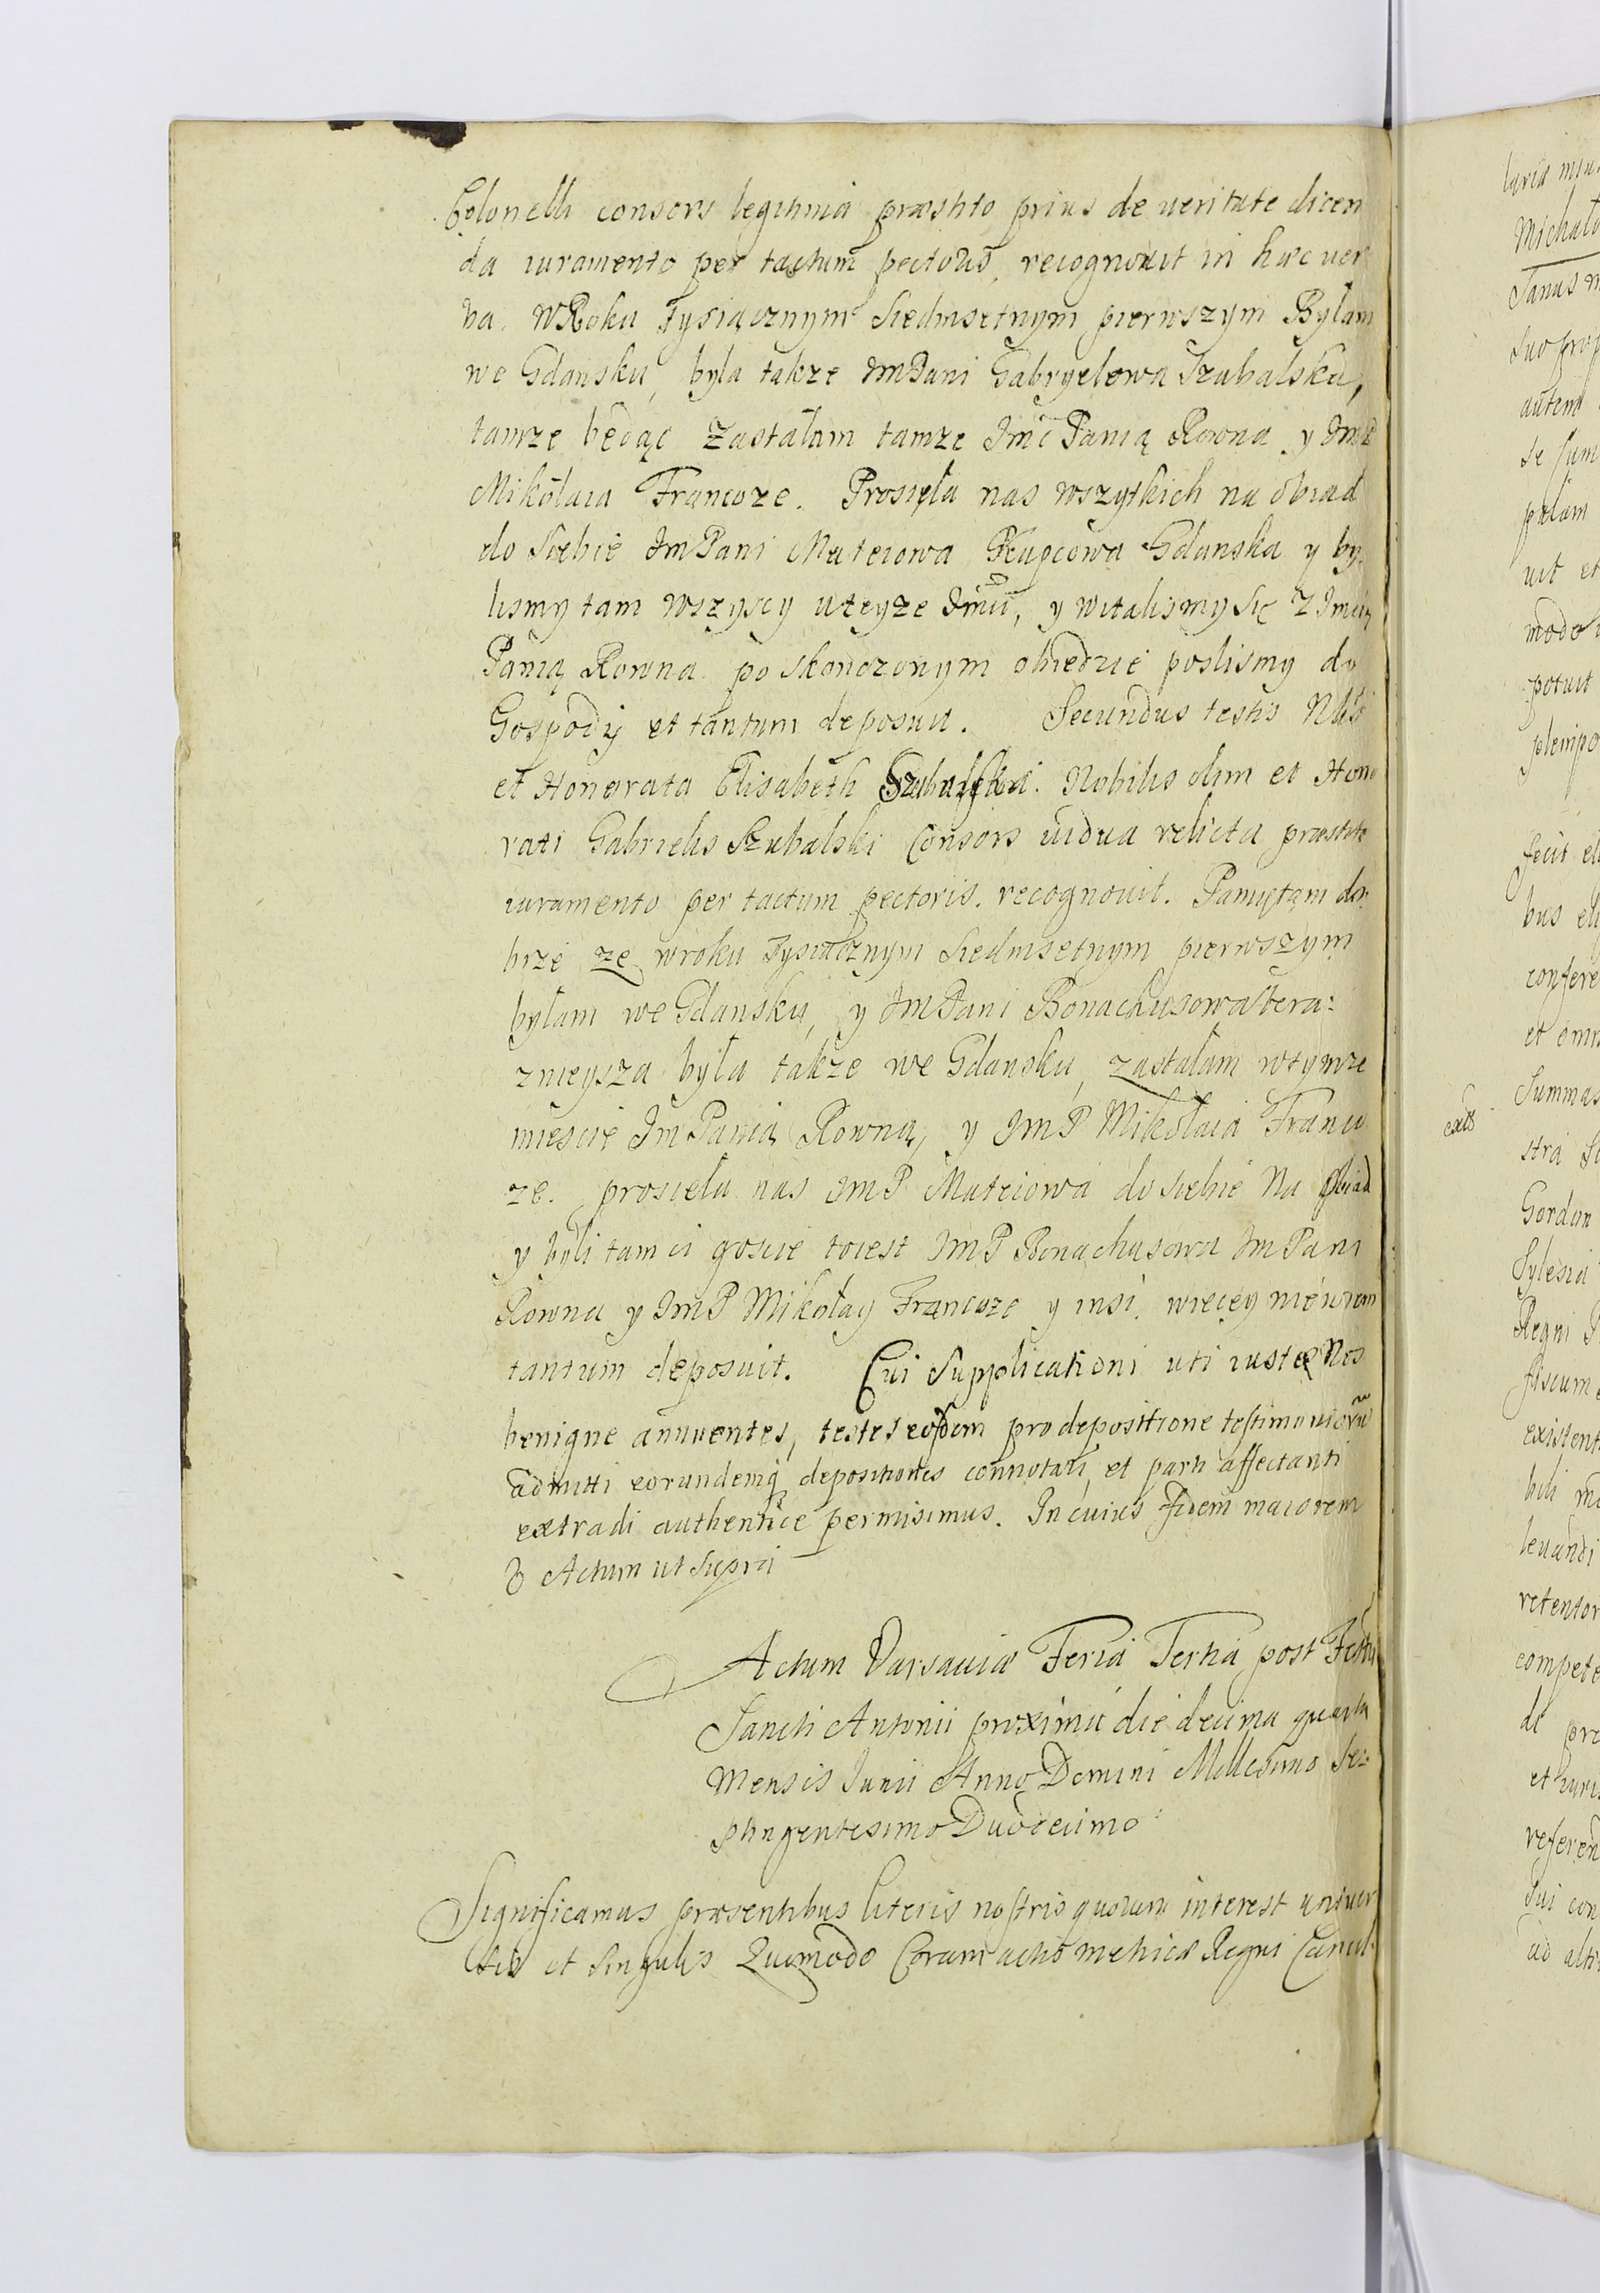 Colonelli consors legitima præstito prius de veritate dicen
da iuramento per tactum pectoris, recognovit in hæc ver
ba. WRoku Tysiącznym Siedmsetnym pierwszym Bylam
we Gdansku, byla takze ImPani Gabryelowa Szubalska,
tamze będąc Zastalam tamze Imć Panią Rowna y ImP
Mikolaia Francoze. Prosięla nas wszytkich na obiad
do Siebie ImPani Mateiowa Kupcowa Gdanska y by
lismy tam wszyscy uteyze Imci, y witalismy się Z Imcią
Panią Rowna po skonczonym obiedzie poslismy do
Gospody et tantum deposuit. Secundus testis Nlis
et Honorata Elisabeth Szubalska. Nobilis olim et Hono
rati Gabrielis Szubalski Consors vidua relicta præstito
iuramento per tactum pectoris. recognovit. Pamiętam do
brze ze wroku Tysiącznym Siedmsetnym pierwszym
bylam we Gdansku, y ImPani Bonachusowa tera:
znieysza byla takze we Gdansku, zastalam wtymze
miescie ImPanią Rowną, y ImP Mikolaia Franco
ze. prosiela nas ImP Mateiowa do siebie Na Obiad
y byli tam ci goscie toiest ImP Bonachusowa ImPani
Rowna y ImP Mikolay Francoze y insi. więcey niewiem
tantum deposuit. Cui Supplicationi uti iustæ Nos
benigne annuentes, testes eosdem pro depositione testimoniorũ
admitti eorundemq depositiones connotari, et parti affectanti
extradi authentice permisimus. In cuius fidem maiorem
& Actum ut supra
Actum Varsaviæ Feria Tertia post Festũ
Sancti Antonii proximũ die decima quarta
Mensis Junii Anno Domini Millesimo Se:
ptingentesimo Duodecimo
Significamus præsentibus literis nostris quorum interest univer
sis et singulis Quomodo Coram actis metricæ Regni Cancel:
Michal
Janus
suo
autem
se sum
palam
uit et
modo
potuit
plenipo
fecit
bus
confere
et omn
Summas
stra
Gordon
Sylesia
Regni
fiscum
existent
bili
levandi
retentor
compete
de pre
et iuris
referen
sui con
ad